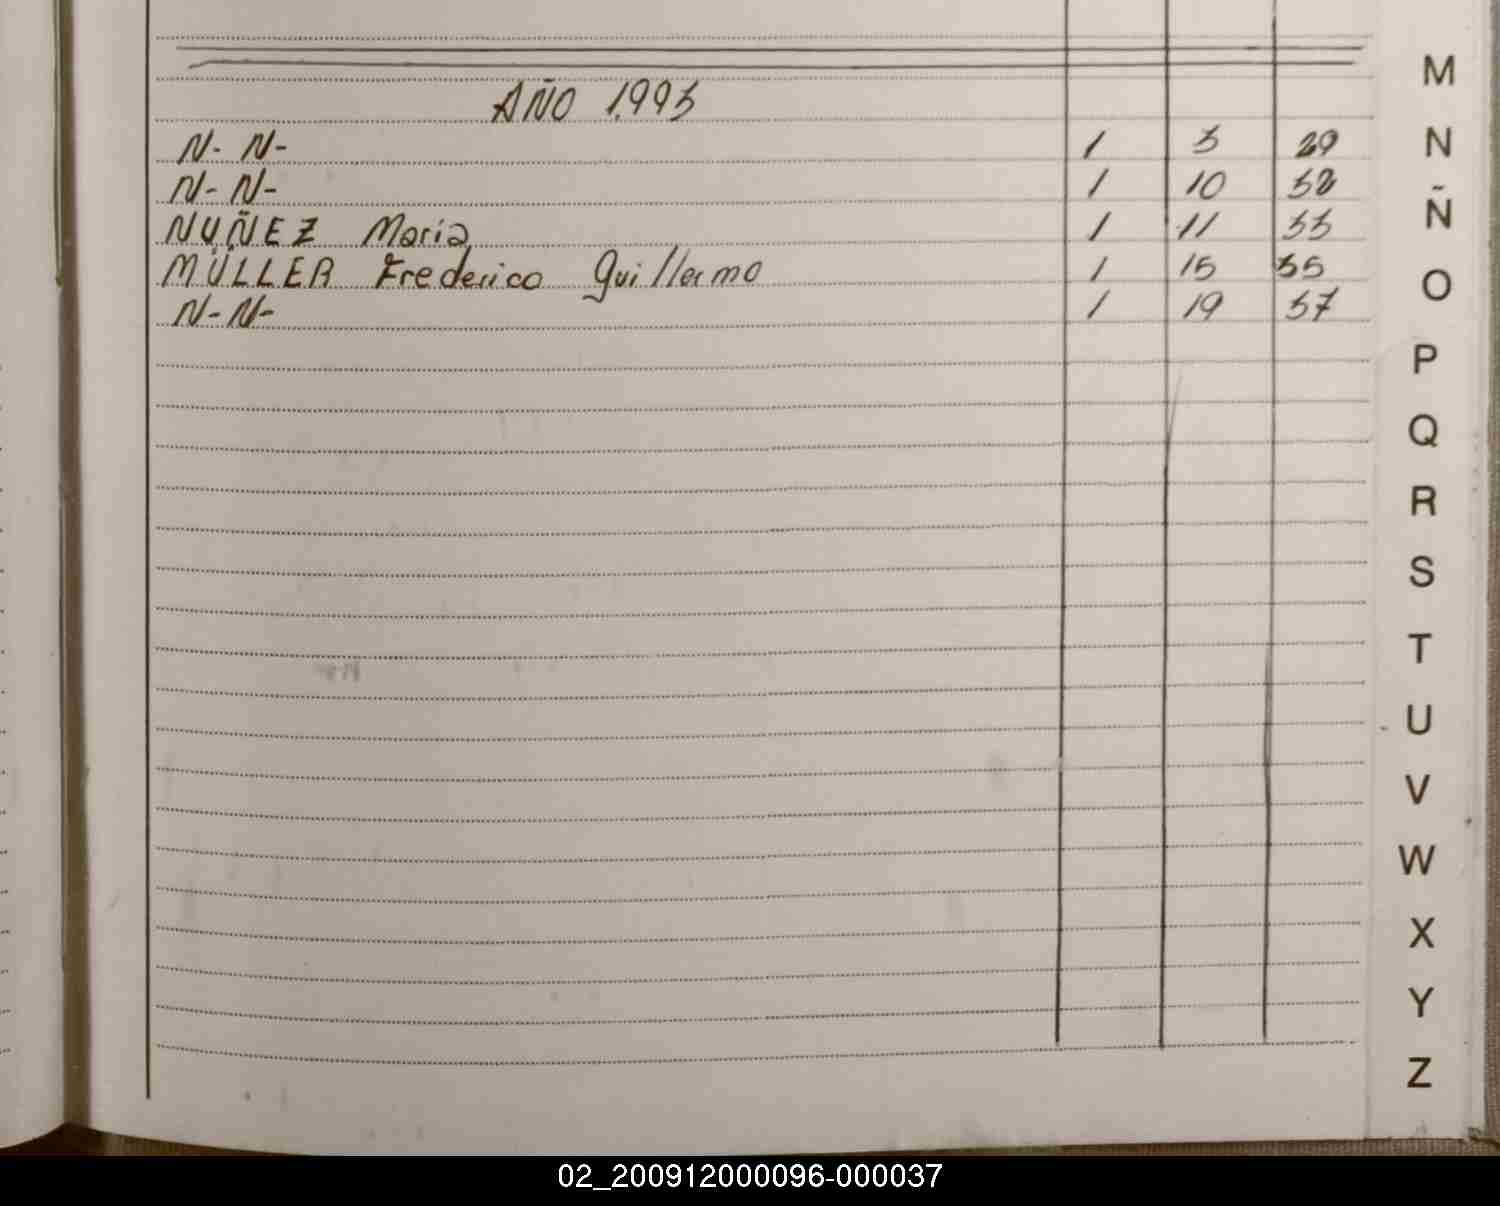 AÑO 1.993
N- N- 1 3 29
N- N- 1 10 32
NUÑEZ Maria 1 11 33
MÜLLER Frederico Guillermo 1 15 35
N- N- 1 19 37
M
N
Ñ
O
P
Q
R
S
T
U
V
W
X
Y
Z
02_200912000096-000037